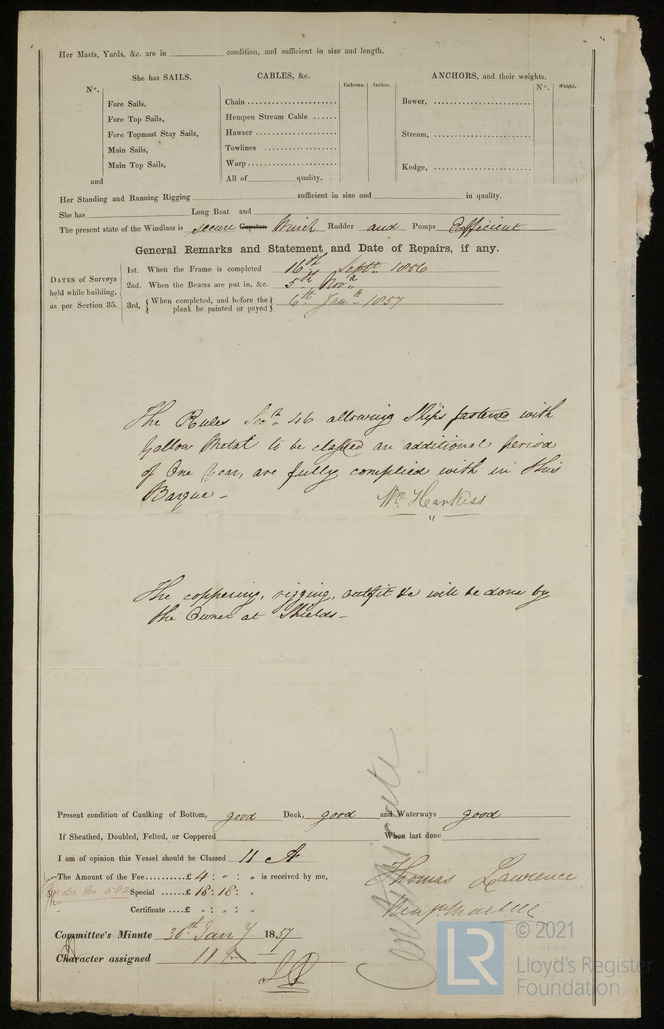 Her Masts, Yards, &c. are in condition, and sufficient in size and length.
She has SAILS. CABLES, &c. Fathoms. Inches. ANCHORS, and their weights. Nº. Weight.
Nº.
Fore Sails, Chain Bower,
Fore Top Sails, Hempen Stream Cable
Fore Topmast Stay Sails, Hawser Stream,
Main Sails, Towlines
Main Top Sails, Warp Kedge,
and All of quality.
Her Standing and Running Rigging sufficient in size and in quality.
She has Long Boat and
The present state of the Windlass is secure Capstan Winch Rudder and Pumps Efficient
General Remarks and Statement and Date of Repairs, if any.
DATES of Surveys held while building, as per Section 35.
1st. When the Frame is completed 16th Septr. 1856
2nd. When the Beams are put in, &c. 5th Novr. "
3rd, {When completed, and before the plank be painted or payed} 6th Jany. 1857
The Rules Sectn. 46 allowing Ships fastened with
Yellow Metal to be classed an additional period
of One Year, are fully complied with in this
Barque –
Wm. Harkess
The coppering, rigging, outfit &c will be done by
the Owner at Shields –
Present condition of Caulking of Bottom, good Deck, good and Waterways good
If Sheathed, Doubled, Felted, or Coppered When last done
I am of opinion this Vessel should be Classed 11 A
The Amount of the Fee..........£ 4 : " : " is received by me,
Special ......£ 18 : 18 : "
Certificate ....£ " : " : "
Thomas Lawrence
Certificate
Committee's Minute 30th Jany 1857
Character assigned 11
© 2021
LR
Lloyd's Register
Foundation